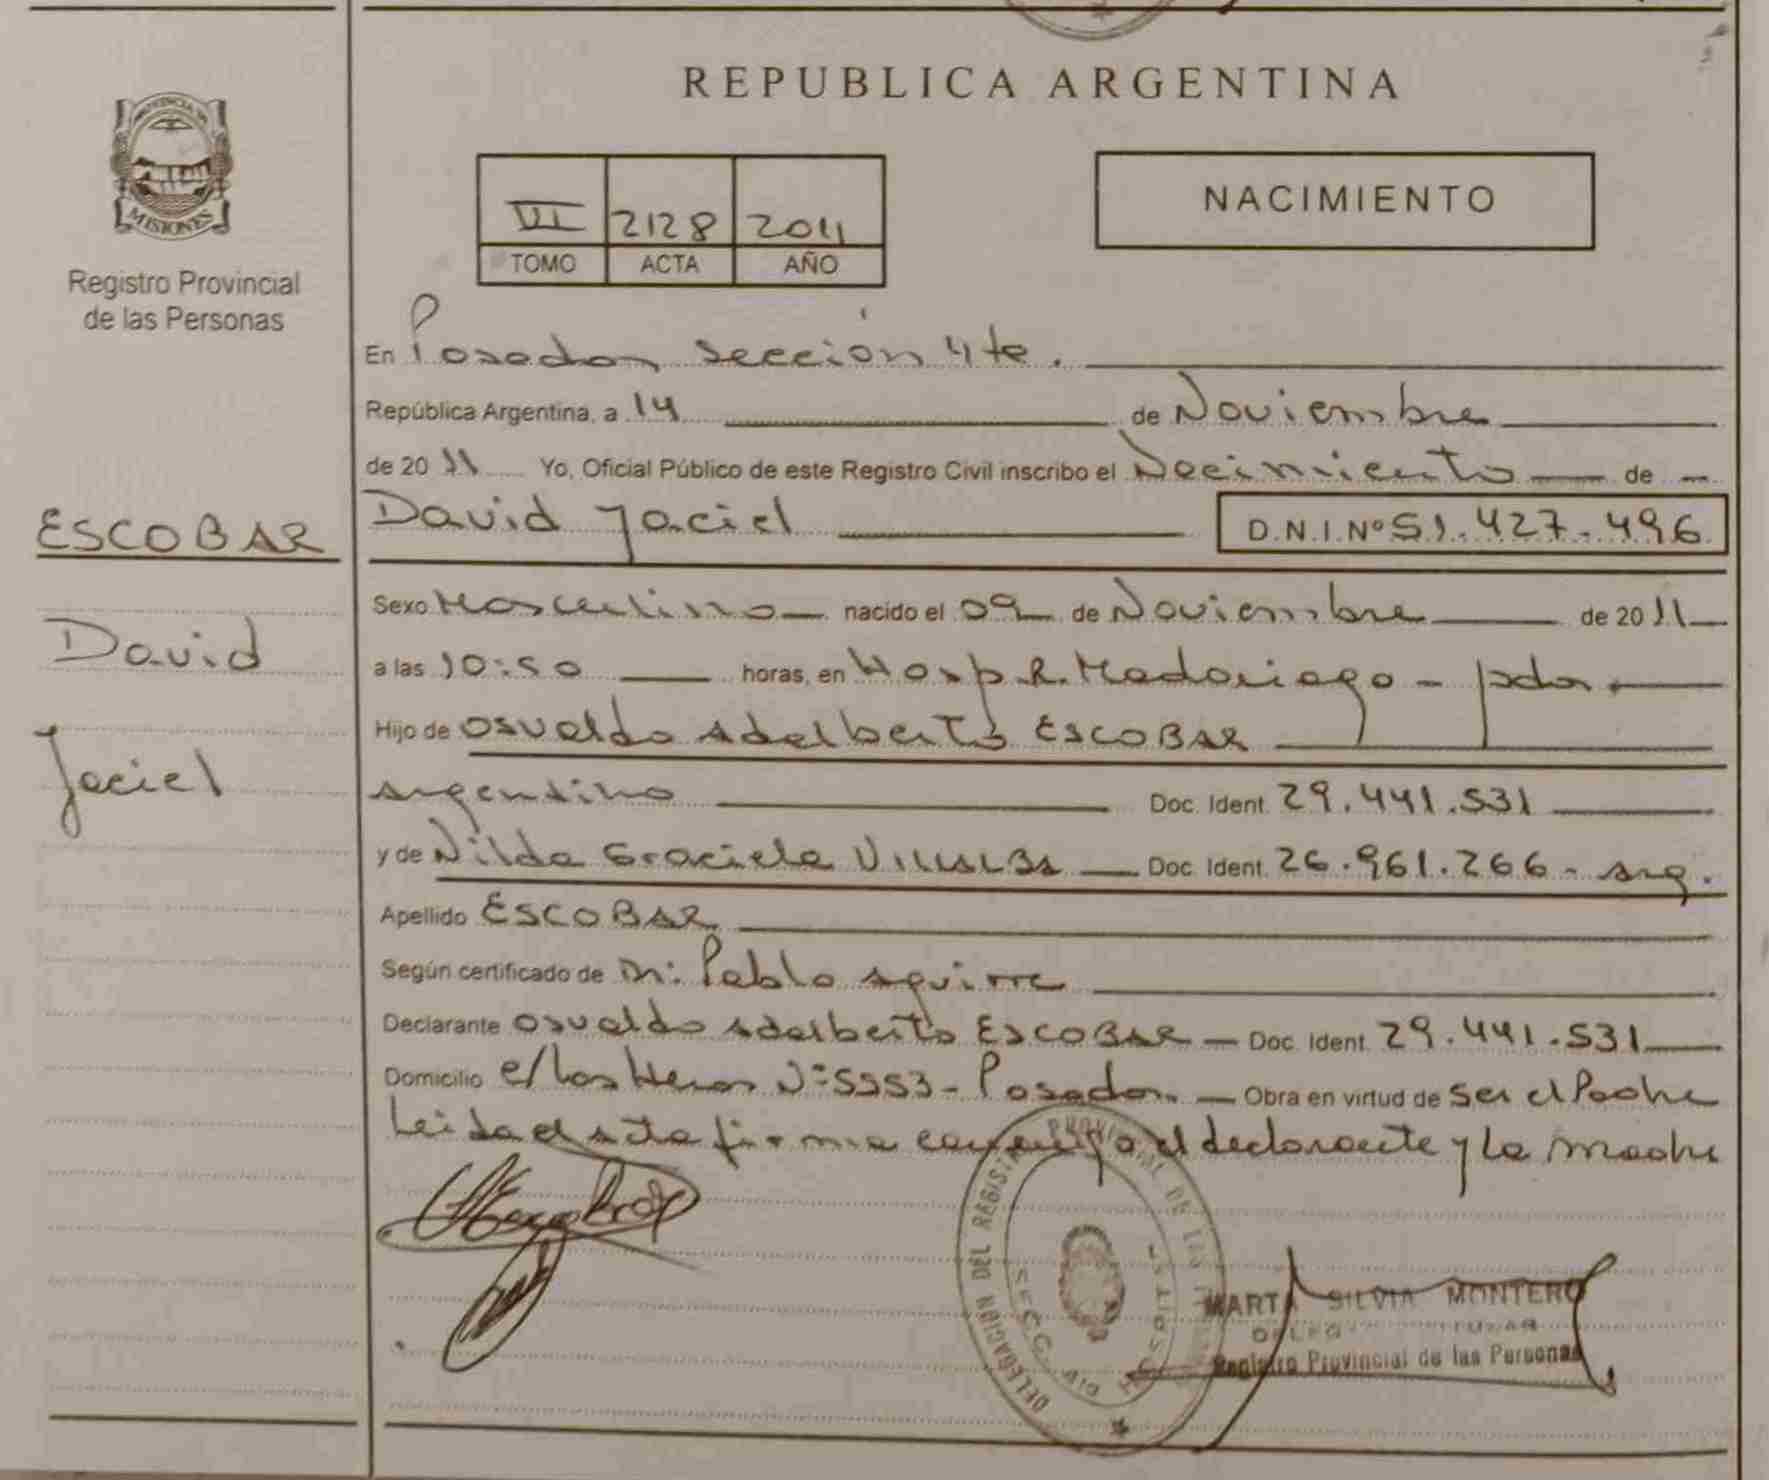 REPUBLICA ARGENTINA
PROVINCIA DE
MISIONES
Registro Provincial
de las Personas
VI 2128 2011
TOMO ACTA AÑO
NACIMIENTO
En Posadas, Sección 4te.
República Argentina, a 14 de Noviembre
de 2011 Yo, Oficial Público de este Registro Civil inscribo el Nacimiento de
David Jaciel D.N.I.Nº 51.427.496
ESCOBAR
David
Jaciel
Sexo Masculino nacido el 09 de Noviembre de 2011
a las 10:50 horas, en Hosp. R. Madariaga - pdas.
Hijo de Osvaldo Adalberto ESCOBAR
argentino Doc. Ident. 29.441.531
y de Nilda Graciela VILLALBA Doc. Ident. 26.961.266 - arg.
Apellido ESCOBAR
Según certificado de M: Pablo Aguirre
Declarante Osvaldo Adalberto ESCOBAR Doc. Ident. 29.441.531
Domicilio c/ Las Heras Nº 5553 - Posadas. Obra en virtud de ser el Padre
Leida el acta firma conmigo el declarante y la madre
DELEGACIÓN DEL REGISTRO PROVINCIAL DE LAS
MARTA SILVIA MONTERO
Registro Provincial de las Personas